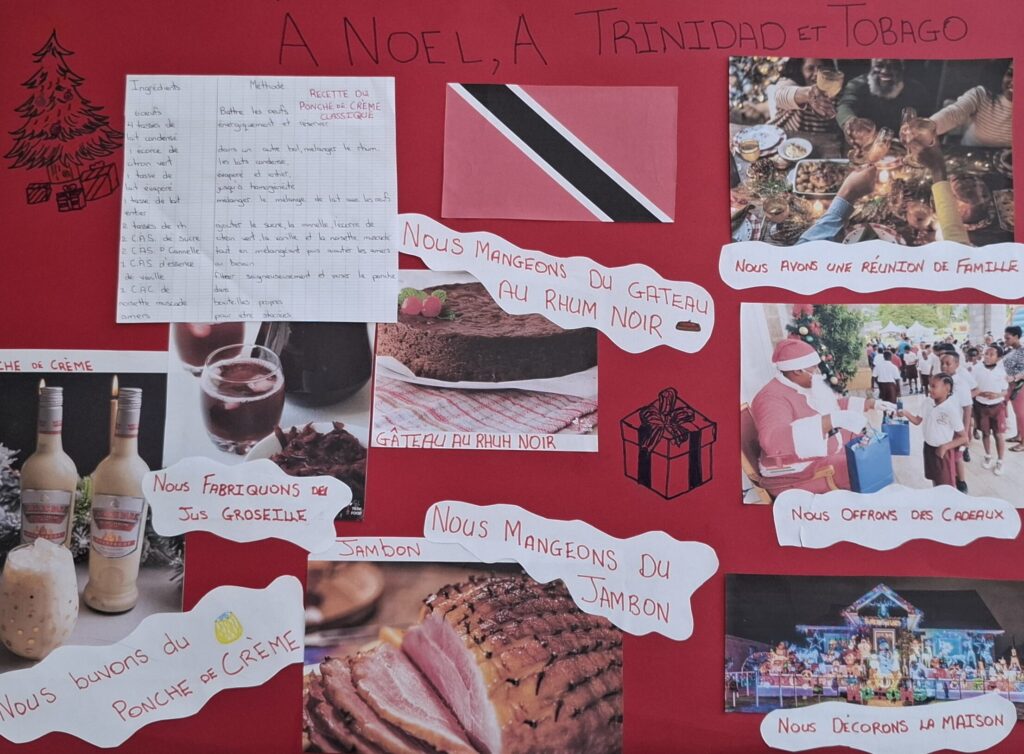 A NOEL, A TRINIDAD ET TOBAGO
Ingrédients Méthode
RECETTE DU
PONCHE DE CRÈME
CLASSIQUE
6 oeufs Battre les oeufs
4 tasses de énergiquement et réserver
lait condensé
1 écorce de dans un autre bol, mélanger le rhum
citron vert les laits condensé,
1 tasse de évaporé et entier,
lait évaporé jusqu'à homogénéité
1 tasse de lait mélanger le mélange de lait avec les oeufs
entier
2 tasses de rh ajouter le sucre, la cannelle, l'écorce de
2 C.A.S. de sucre citron vert, la vanille et la noisette muscade
2 C.A.S. Cannelle tout en mélangeant puis ajouter les amers
2 C.A.S d'essence au besoin
de vanille filtrer soigneusement et verser le ponche
1 C.A.C de dans
noisette muscade bouteilles propres
amers pour être stockées
NOUS MANGEONS DU GATEAU
AU RHUM NOIR
NOUS AVONS UNE RÉUNION DE FAMILLE
CHE DE CRÈME
GÂTEAU AU RHUM NOIR
NOUS FABRIQUONS DE
JUS GROSEILLE
NOUS OFFRONS DES CADEAUX
JAMBON
NOUS MANGEONS DU
JAMBON
Nous buvons du
PONCHE DE CRÈME
NOUS DÉCORONS LA MAISON